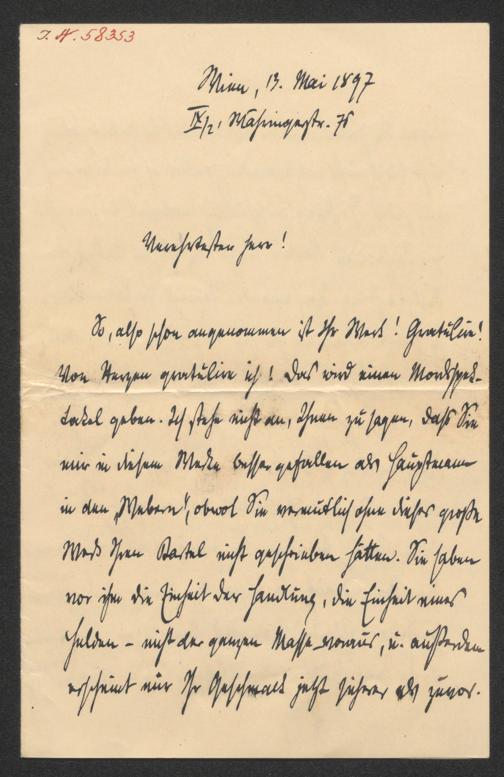 I. N. 58353
Wien, 13. Mai 1897
IX/2, Währingerstr. 78
Verehrtester Herr!
So, also schon angenommen ist Ihr Werk! Gratulire!
Von Herzen gratulire ich! Das wird einen Mordsspek-
takel geben. Ich stehe nicht an, Ihnen zu sagen, daß Sie
mir in diesem Werke besser gefallen als Hauptmann
in den „Webern“, obwol Sie vermutlich ohne dieses große
Werk Ihren Bartel nicht geschrieben hätten. Sie haben
vor ihm die Einheit der Handlung, die Einheit eines
Helden – nicht der ganzen Masse voraus, u. außerdem
erscheint mir Ihr Geschmack jetzt sicherer als zuvor.